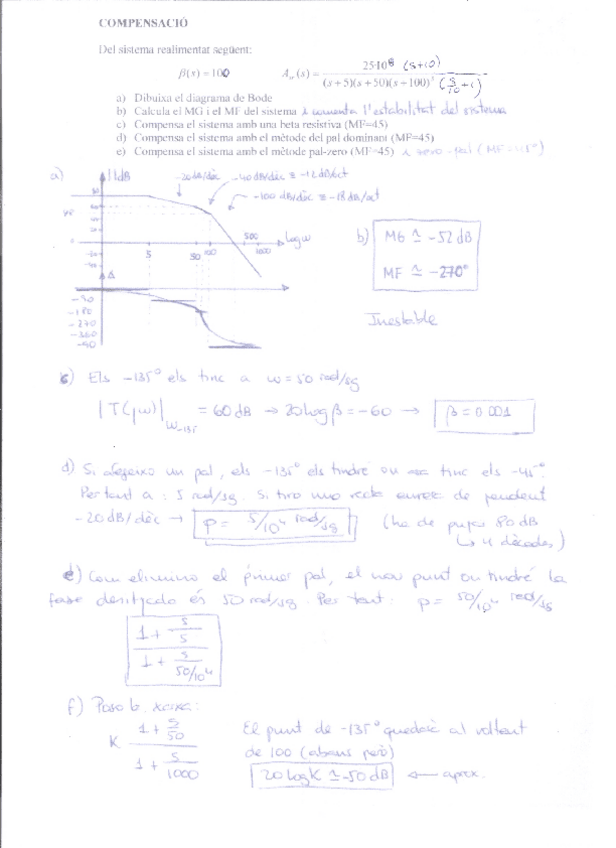 COMPENSACIÓ
Del sistema realimentat següent:
β(s) = 100 A (s) = 25·10⁸ (s+10) / (s+5)(s+50)(s+100)
a) Dibuixa el diagrama de Bode
b) Calcula el MG i el MF del sistema i comenta l'estabilitat del sistema
c) Compensa el sistema amb una beta resistiva (MF=45)
d) Compensa el sistema amb el mètode del pal dominant (MF=45)
e) Compensa el sistema amb el mètode pal-zero (MF=45) i zero-pal (MF=45°)
a) | |dB -20dB/dèc -40dB/dèc ≡ -12dB/oct
-100 dB/dèc ≡ -18dB/oct
5 50 100 500 1000 logω
-90
-180
-270
-360
b) MG ≃ -52 dB
MF ≃ -270°
Inestable
c) Els -135° els tinc a ω = 50 rad/sg
|T(jω)| ω-135 = 60 dB → 20 log β = -60 → β = 0.001
d) Si afegeixo un pal, els -135° els tindré on tinc els -45°.
Per tant a: 5 rad/sg. Si tiro una recta enrere de pendent
-20 dB/dèc → p = 5/10⁴ rad/sg (ha de pujar 80 dB
↳ 4 dècades)
e) Com elimino el primer pal, el nou punt on tindré la
fase desitjada és 50 rad/sg. Per tant: p = 50/10⁴ rad/sg
1 + s/5
1 + s/50/10⁴
f) Poso b. xarxa:
K 1 + s/50 El punt de -135° quedarà al voltant
1 + s/1000 de 100 (abans però)
20 log K ≃ -50 dB ← aprox.